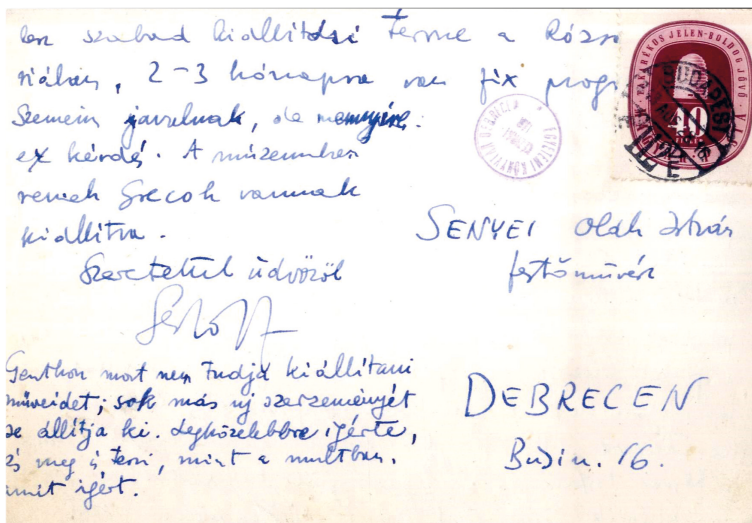 len szabad kiállítási terme a Rózs
riában, 2-3 hónapra van fix prog
Szemeim javulnak, de mennyire:
ez kérdés. A múzeumban
remek Grecok vannak
kiállítva.
Szeretettel üdvözöl
Genthon most nem tudja kiállítani
műveidet; sok más új szerzeményét
se állítja ki. Legközelebbre igérte,
és meg is teszi, mint a multban.
amit igért.
TAKARÉKOS JELEN-BOLDOG JÖVŐ
10
BUDAPEST
EGYETEMI KÖNYVTÁR DEBRECEN
SENYEI Oláh István
festőművész
DEBRECEN
16.